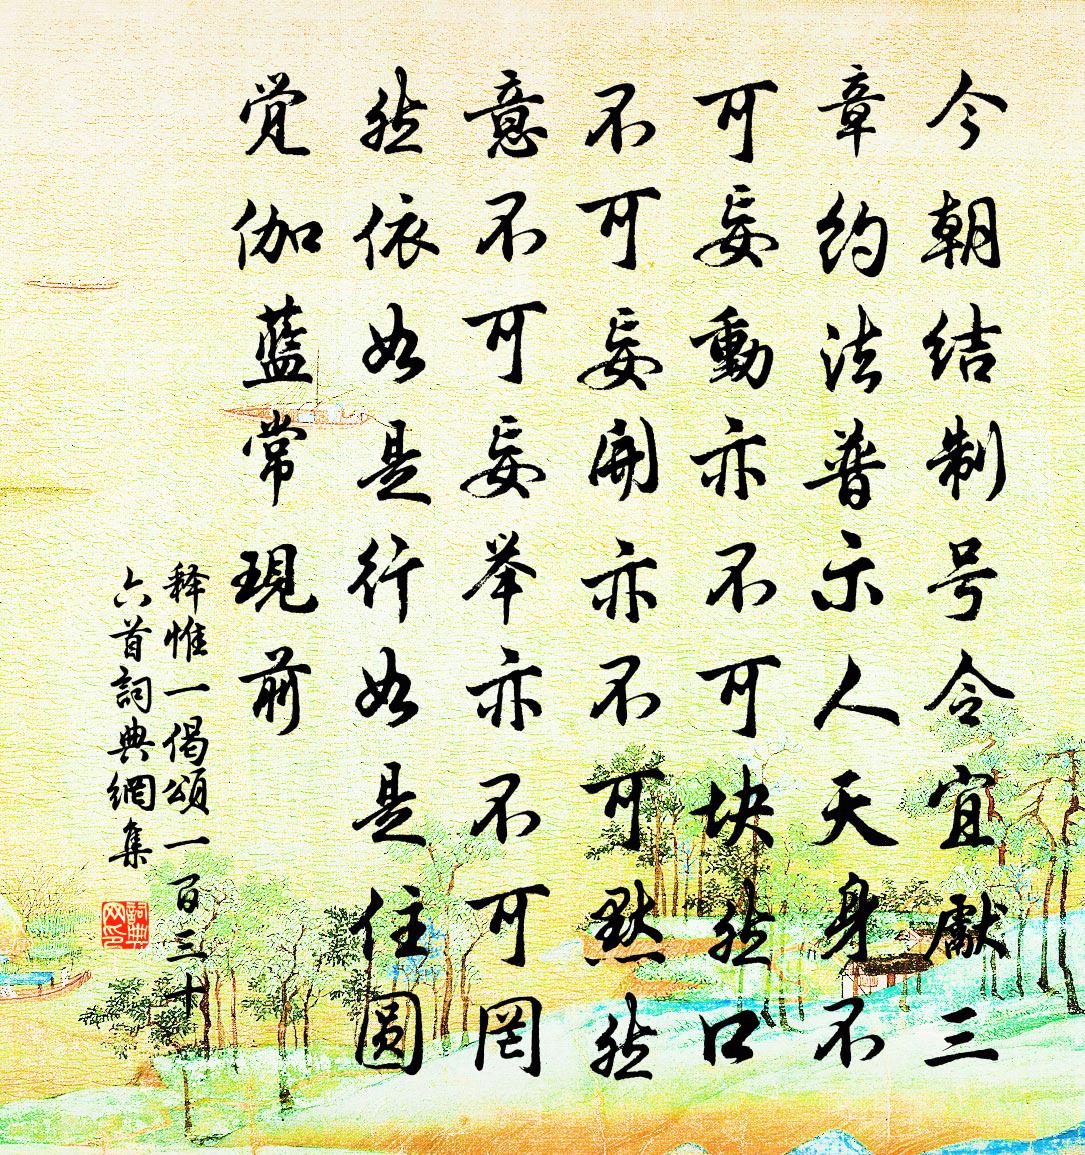 今朝结制号令宜獻三
章约法普示人天身不
可妄動亦不可块然口
不可妄開亦不可默然
意不可妄举亦不可罔
然依如是行如是住圆
觉伽藍常現前
释惟一偈頌一百三十
六首詞典網集
詞典网印